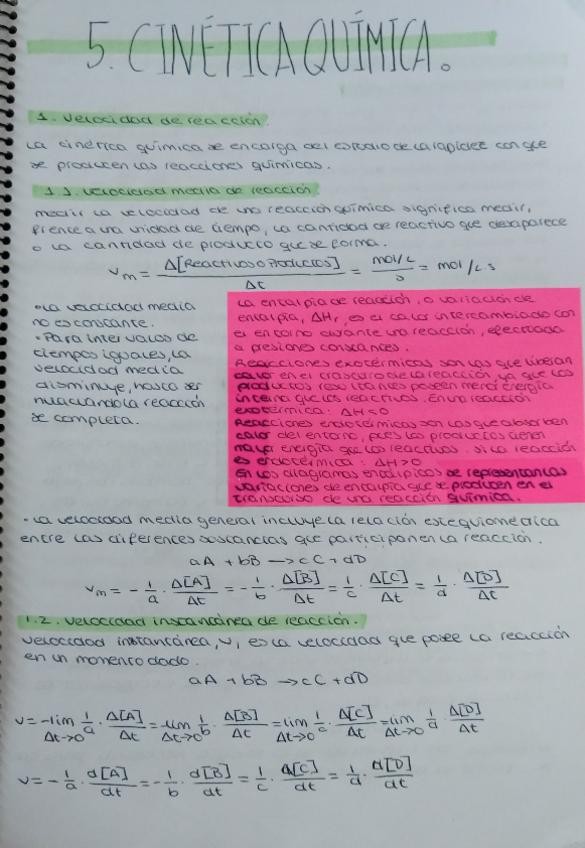 5. CINÉTICA QUÍMICA.
1. Velocidad de reacción.
La cinética química se encarga del estudio de la rapidez con que
se producen las reacciones químicas.
1.1. Velocidad media de reacción.
Medir la velocidad de una reacción química significa medir,
frente a una unidad de tiempo, la cantidad de reactivo que desaparece
o la cantidad de producto que se forma.
Vm = Δ[Reactivos o Productos] / Δt = mol/L / s = mol/L s
• La velocidad media
no es constante.
• Para intervalos de
tiempos iguales, la
velocidad media
disminuye, hasta ser
nula cuando la reacción
se completa.
La entalpía de reacción, o variación de
entalpía, ΔHr, es el calor intercambiado con
el entorno durante una reacción, efectuada
a presiones constantes.
Reacciones exotérmicas son las que liberan
calor en el trascurso de la reacción, ya que los
productos resultantes poseen menor energía
interna que los reactivos. En una reacción
exotérmica: ΔH<0
Reacciones endotérmicas son las que absorben
calor del entorno, pues los productos tienen
mayor energía que los reactivos. Si la reacción
es endotérmica: ΔH>0
En los diagramas entálpicos se representan las
variaciones de entalpía que se producen en el
transcurso de una reacción química.
• La velocidad media general incluye la relación estequiométrica
entre las diferentes sustancias que participan en la reacción.
aA + bB → cC + dD
Vm = - 1/a · Δ[A]/Δt = - 1/b · Δ[B]/Δt = 1/c · Δ[C]/Δt = 1/d · Δ[D]/Δt
1.2. Velocidad instantánea de reacción.
Velocidad instantánea, v, es la velocidad que posee la reacción
en un momento dado.
aA + bB → cC + dD
v = -lim Δt→0 1/a · Δ[A]/Δt = -lim Δt→0 1/b · Δ[B]/Δt = lim Δt→0 1/c · Δ[C]/Δt = lim Δt→0 1/d · Δ[D]/Δt
v = - 1/a · d[A]/dt = - 1/b · d[B]/dt = 1/c · d[C]/dt = 1/d · d[D]/dt